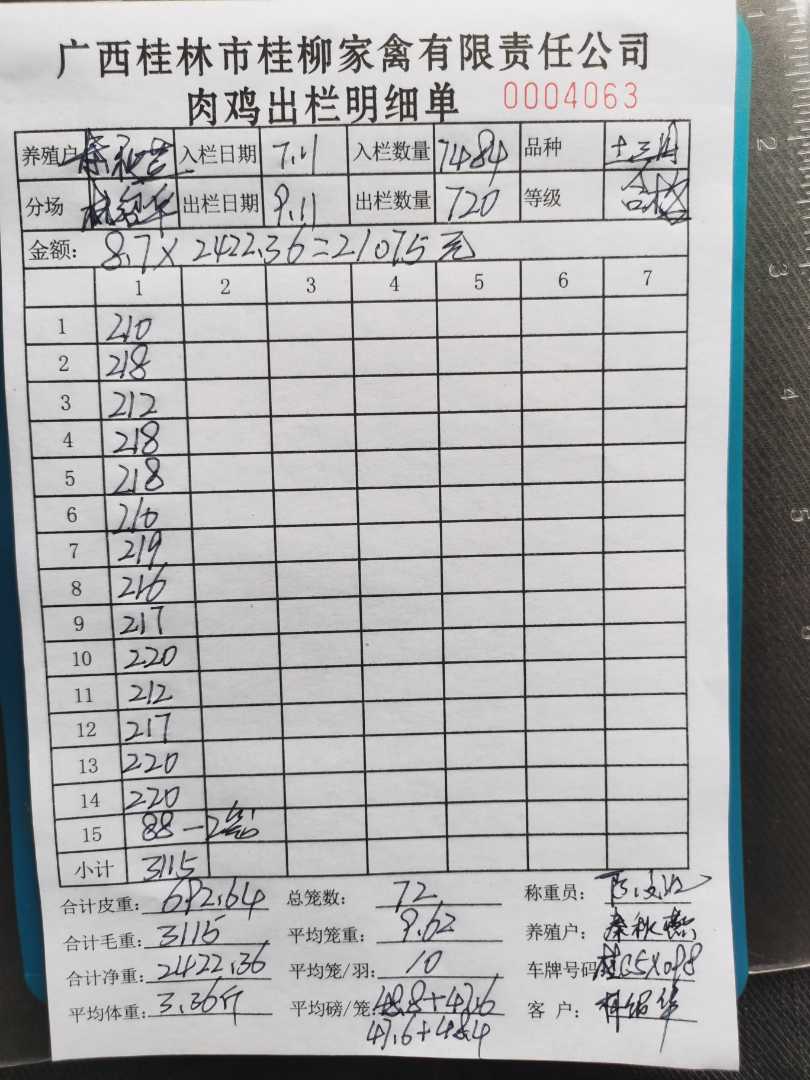 广西桂林市桂柳家禽有限责任公司
肉鸡出栏明细单 0004063
养殖户 入栏日期 7.11 入栏数量 7484 品种
分场 出栏日期 9.11 出栏数量 720 等级 合格
金额: 8.7×2422.36=21075元
1 2 3 4 5 6 7
1 210
2 218
3 212
4 218
5 218
6 210
7 219
8 216
9 217
10 220
11 212
12 217
13 220
14 220
15 88-2笼
小计 3115
合计皮重: 692.64 总笼数: 72 称重员:
合计毛重: 3115 平均笼重: 9.62 养殖户:
合计净重: 2422.36 平均笼/羽: 10 车牌号码
平均体重: 3.36斤 平均磅/笼: 48.8+47.6 客户:
47.6+48.4